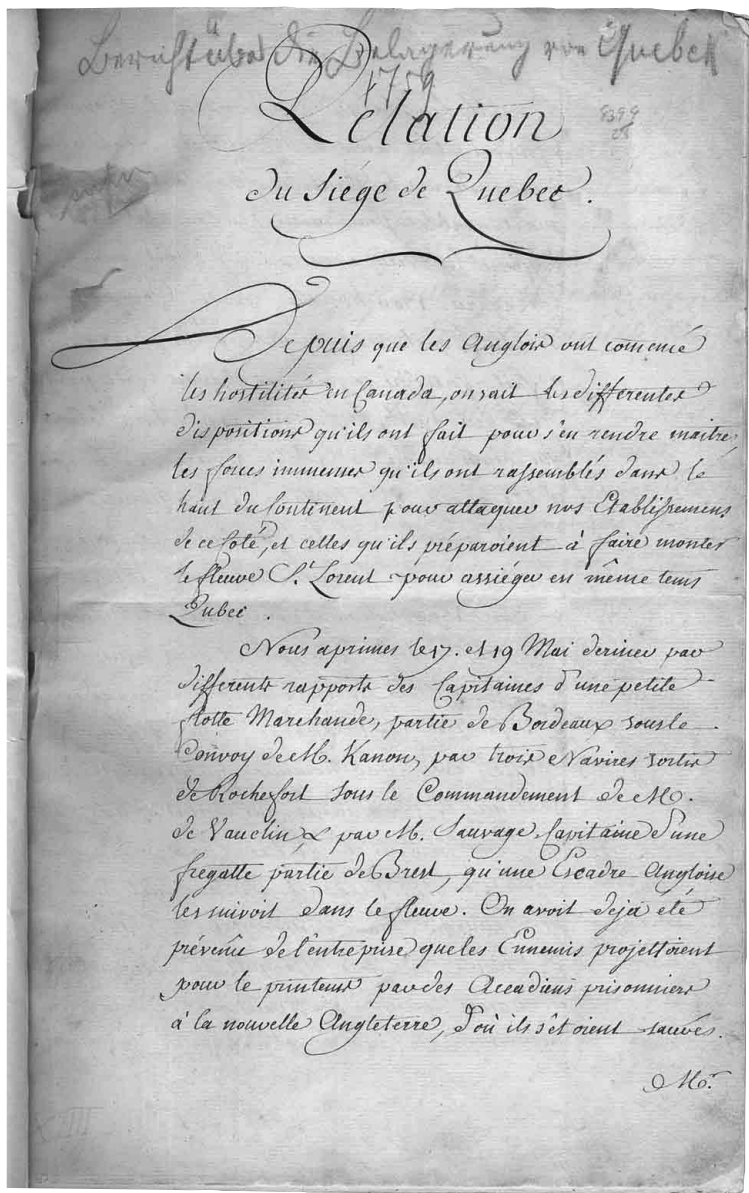 Bericht über die Belagerung von Quebek
1759
Relation
du Siége de Quebec.
8399
28
Depuis que les Anglois ont comencé
les hostilités en Canada, on sait les differentes
dispositions qu'ils ont fait pour s'en rendre maitre,
les forces immenses qu'ils ont rassemblés dans le
haut du Continent pour attaquer nos Etablissemens
de ce Coté, et celles qu'ils préparoient à faire monter
le fleuve St. Lorent pour assiéger en même tems
Qubec.
Nous aprimes le 17. et 19 Mai dernier par
differents rapports des Capitaines d'une petite
flotte Marchande, partie de Bordeaux sous le
Convoy de M. Kanon, par trois Navires sortis
de Rochefort sous le Commandement de M.
de Vauclin, & par M. Sauvage Capitaine d'une
fregatte partie de Brest, qu'une Escadre Angloise
les suivoit dans le fleuve. On avoit deja eté
prévenû de l'entreprise que les Ennemis projettoient
pour le printems par des Accadiens prisonniers
à la nouvelle Angleterre, d'où ils s'étoient sauvés.
Mr.